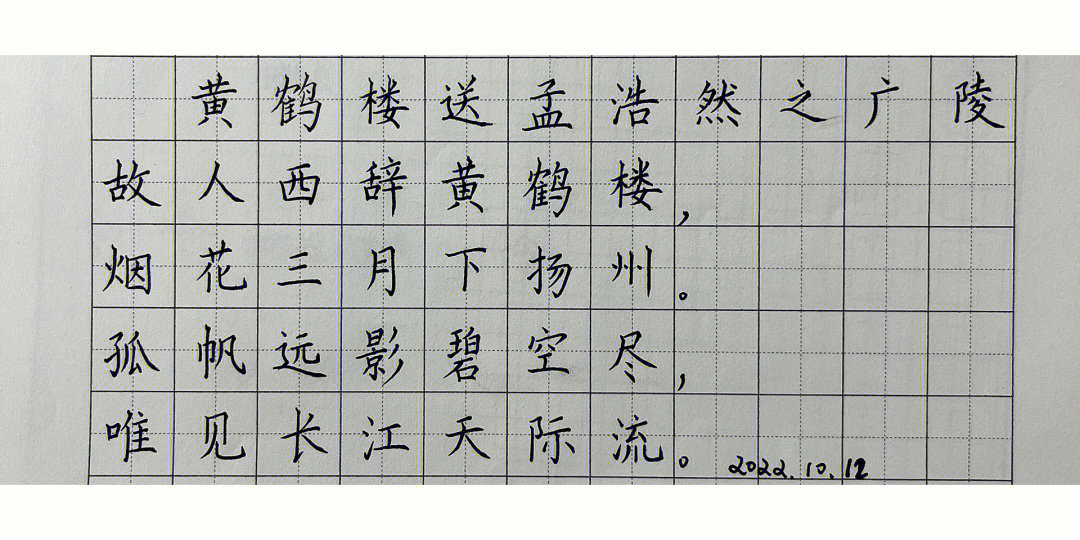 黄鹤楼送孟浩然之广陵
故人西辞黄鹤楼，
烟花三月下扬州。
孤帆远影碧空尽，
唯见长江天际流。 2022.10.12